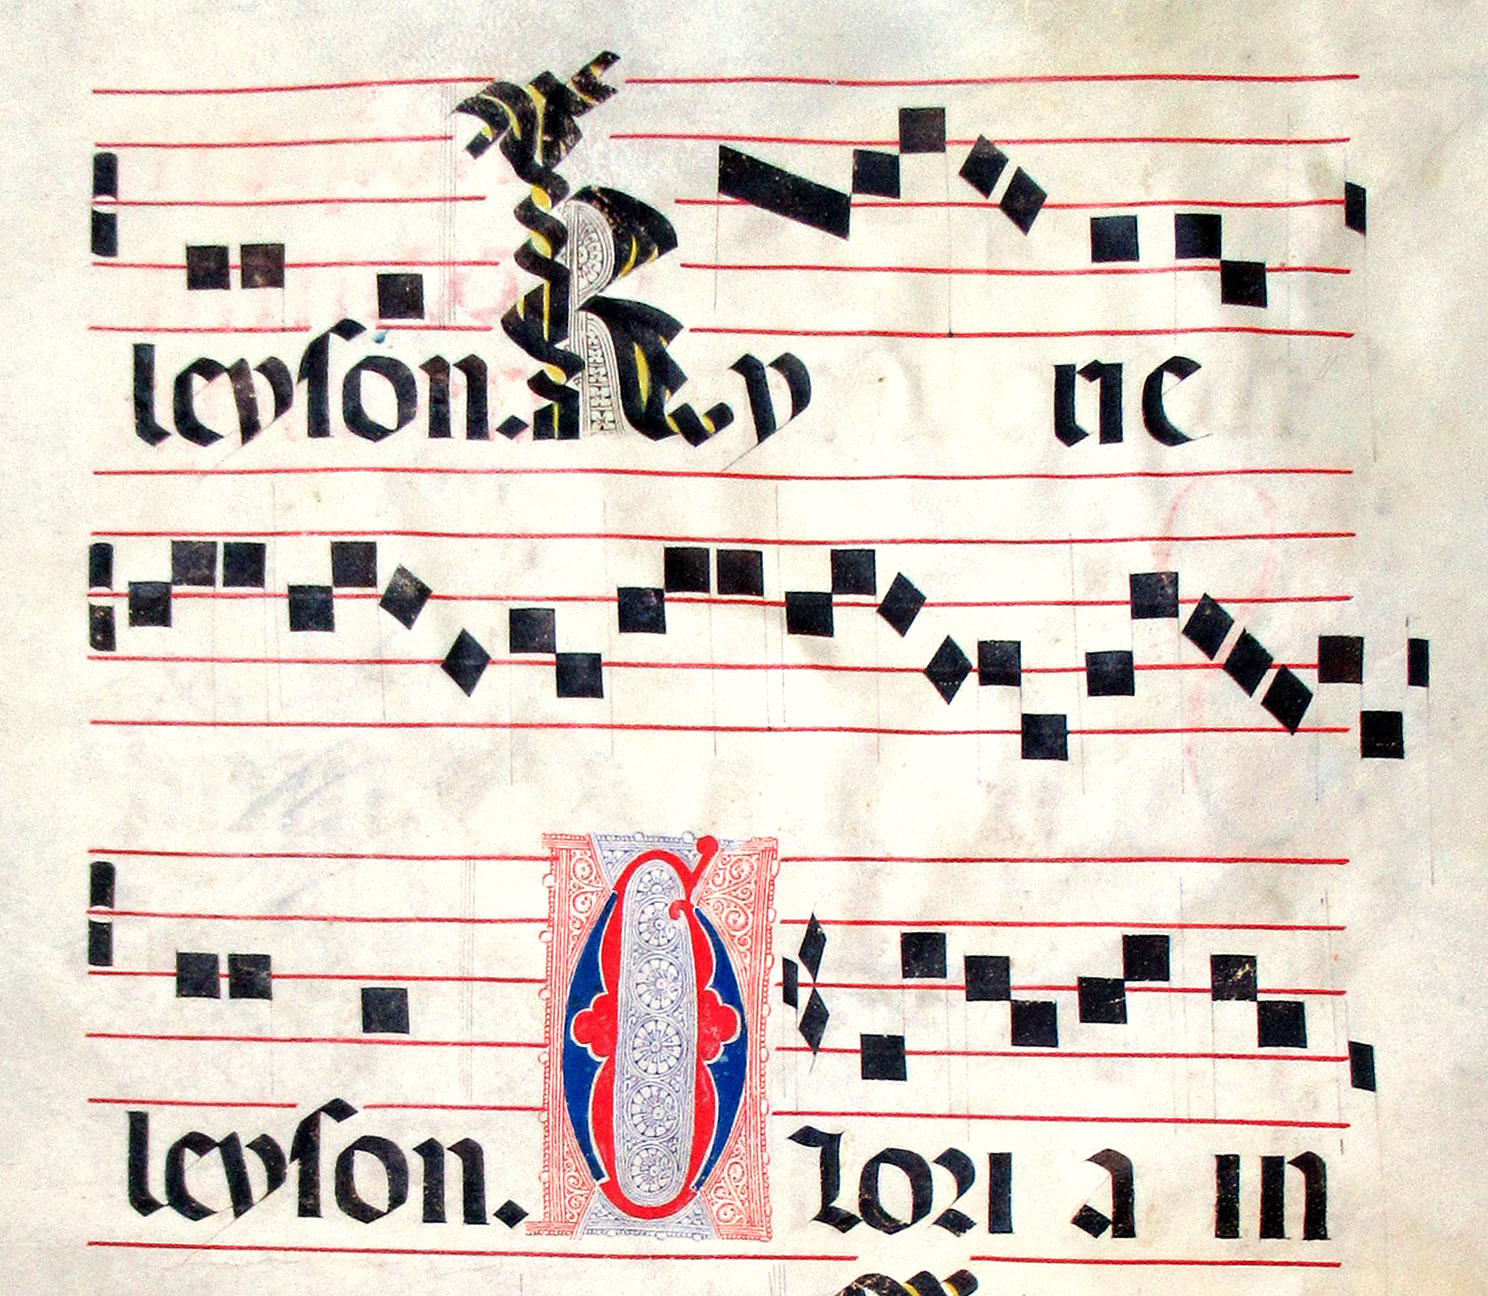 leyson. Ky rie
leyson. Glori a in